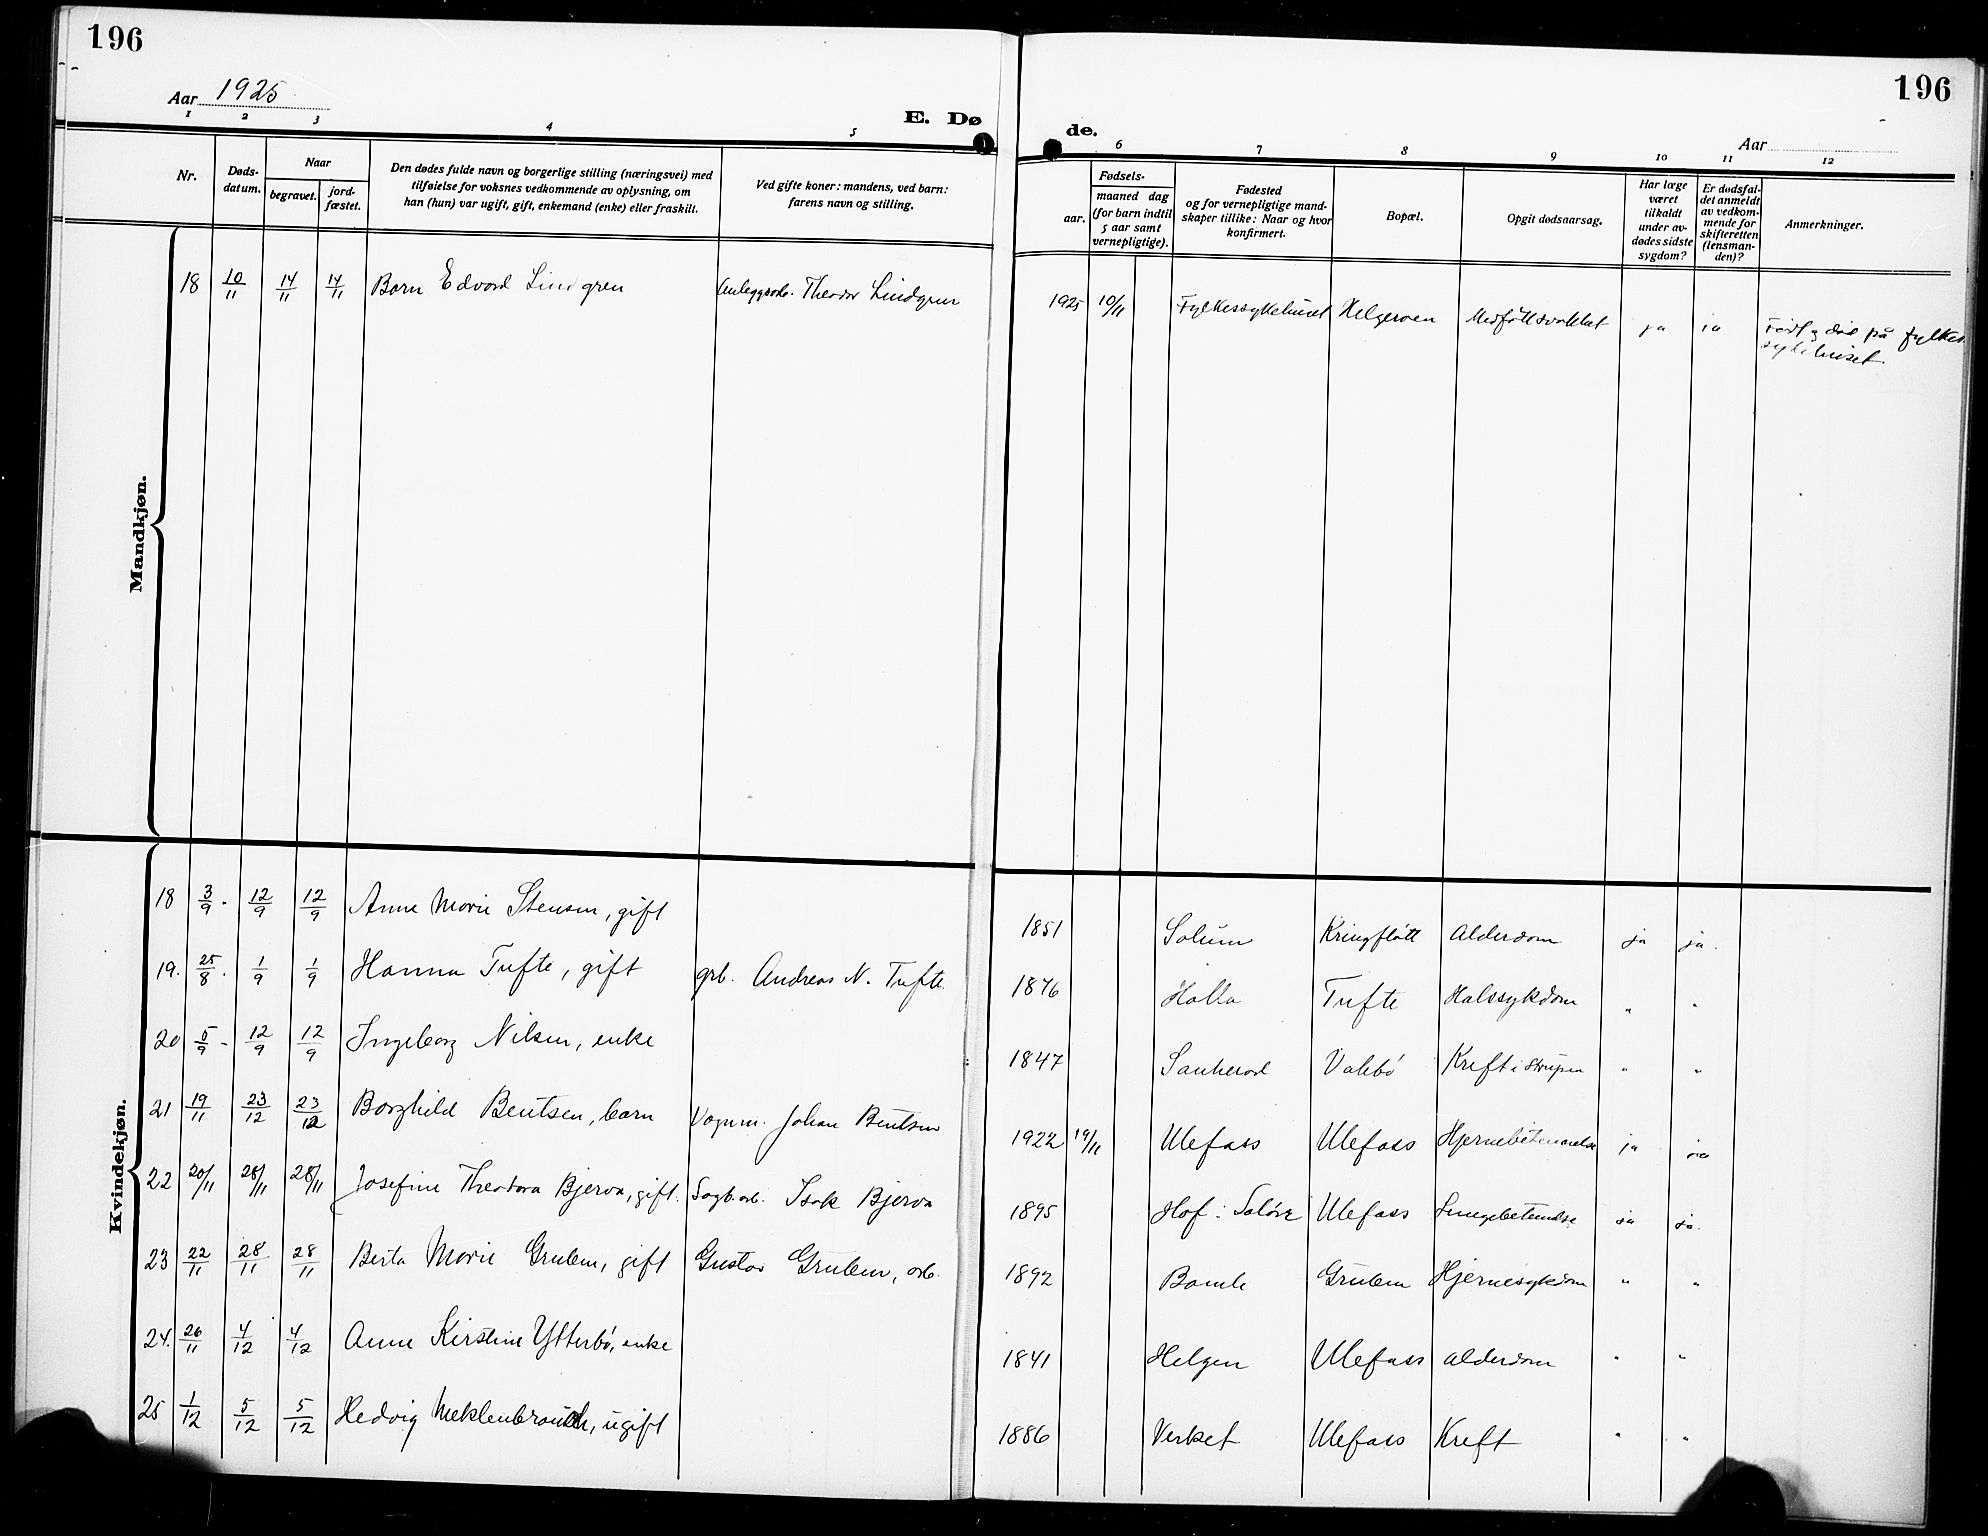 196
196
Aar 1925
E. Døde.
Aar
1 2 3 4 5 6 7 8 9 10 11 12
Nr.
Døds-
datum.
Naar
begravet.
jord-
fæstet.
Den dødes fulde navn og borgerlige stilling (næringsvei) med
tilføielse for voksnes vedkommende av oplysning, om
han (hun) var ugift, gift, enkemand (enke) eller fraskilt.
Ved gifte koner: mandens, ved barn:
farens navn og stilling.
Fødsels-
aar.
maaned dag
(for barn indtil
5 aar samt
vernepligtige).
Fødested
og for vernepligtige mand-
skaper tillike: Naar og hvor
konfirmert.
Bopæl.
Opgit dødsaarsag.
Har læge
været
tilkaldt
under av-
dødes sidste
sygdom?
Er dødsfal-
det anmeldt
av vedkom-
mende for
skifteretten
(lensman-
den)?
Anmerkninger.
Mandkjøn.
18 10/11 14/11 14/11 Barn Edvard Lindgren Anleggsarb. Theodor Lindgren 1925 10/11 Fylkessykehuset Helgeroen Medfött svakhet ja ja Född og död på fylkes
sykehuset.
Kvindekjøn.
18 3/9. 12/9 12/9 Anne Marie Stensen, gift 1851 Solum Kringflött Alderdom ja ja.
19. 25/8. 1/9 1/9 Hanna Tufte, gift grb. Andreas N. Tufte. 1876 Holla Tufte Halssykdom " "
20 5/9 - 12/9 12/9 Ingeborg Nilsen, enke 1847 Sauherad Valebö Kreft i strupen " "
21 19/11 23/12 23/12 Borghild Bentsen, barn Vognm. Johan Bentsen 1922 19/11 Ulefoss Ulefoss Hjernebetennelse ja ja
22 20/11 28/11 28/11 Josefine Theodora Bjerva, gift. Sagb.arb. Isak Bjerva 1895 Hof i Solör Ulefoss Lungebetendse ja ja.
23 22/11 28/11 28/11 Berta Marie Gruben, gift Gustav Gruben, arb. 1892 Bamle Gruben Hjernesykdom " "
24. 26/11 4/12 4/12 Anne Kirstine Ytterbö, enke 1841 Helgen Ulefoss Alderdom " "
25 1/12 5/12 5/12 Hedvig , ugift 1886 Verket Ulefoss Kreft " "